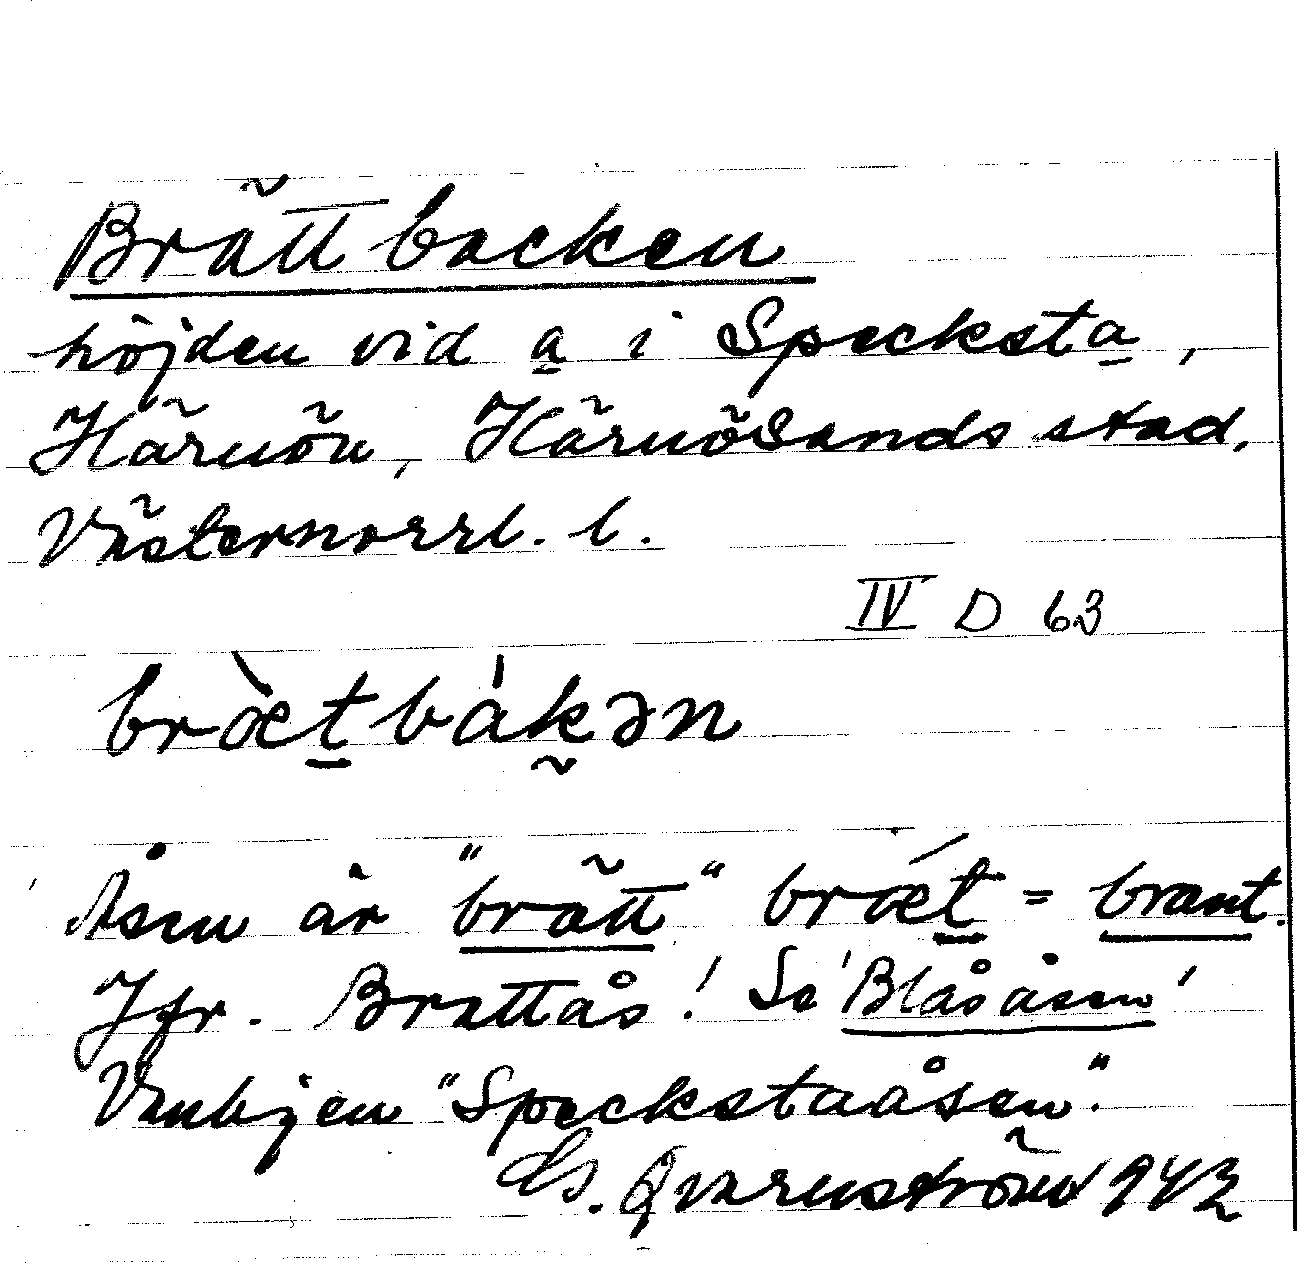 Brättbacken
höjden vid a i Specksta,
Härnön, Härnösands stad,
Västernorrl. l.
IV D 63
bræ̀tbák̰ən
Åsen är "brätt" brǽt = brant.
Jfr. Brattås! Se 'Blåsåsen'
Vanligen "Speckstaåsen".
Es. Qvarnström 1942